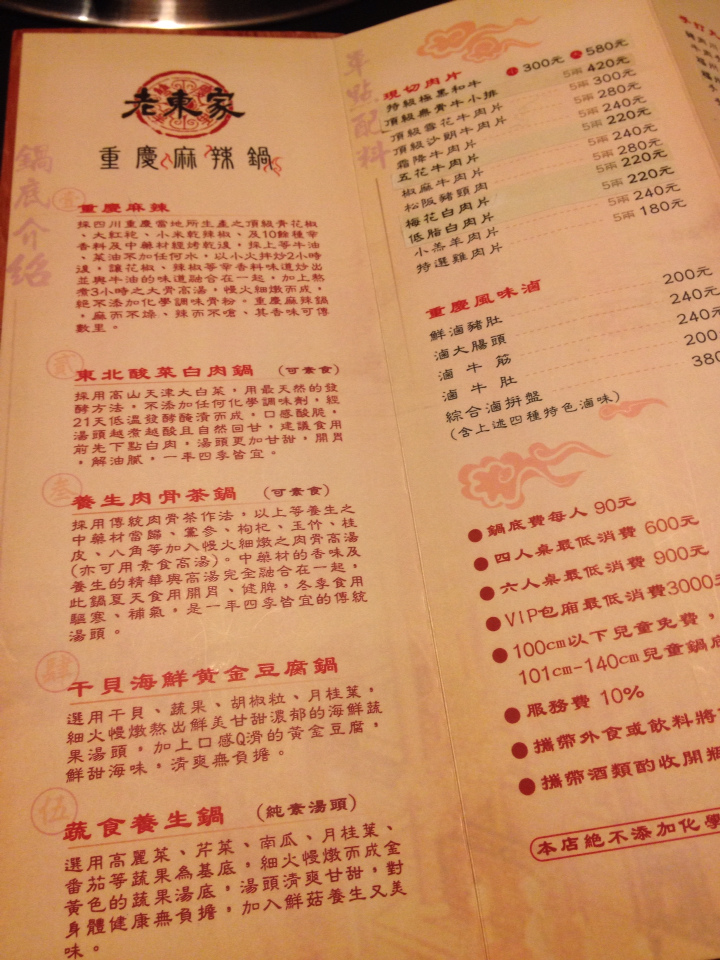 老東家
重慶麻辣鍋
鍋底介紹
壹
重慶麻辣
採四川重慶當地所生產之頂級青花椒
、大紅袍、小米乾辣椒、及10餘種辛
香料及中藥材經烤乾後,採上等牛油
、菜油不加任何水,以小火拌炒2小時
後,讓花椒、辣椒等辛香料味道炒出
並與牛油的味道融合在一起,加上熬
煮3小時之大骨高湯,慢火細燉而成,
絕不添加化學調味骨粉。重慶麻辣鍋
,麻而不燥、辣而不嗆、其香味可傳
數里。
貳
東北酸菜白肉鍋 (可素食)
採用高山天津大白菜,用最天然的發
酵方法,不添加任何化學調味劑,經
21天低溫發酵醃漬而成,口感酸脆,
湯頭越煮越酸且自然回甘,建議食用
前先下點白肉,湯頭更加甘甜,開胃
,解油膩,一年四季皆宜。
叁
養生肉骨茶鍋 (可素食)
採用傳統肉骨茶作法,以上等養生之
中藥材當歸、黨參、枸杞、玉竹、桂
皮、八角等加入慢火細燉之肉骨高湯
(亦可用素食高湯)。中藥材的香味及
養生的精華與高湯完全融合在一起,
此鍋夏天食用開胃、健脾,冬季食用
驅寒、補氣,是一年四季皆宜的傳統
湯頭。
肆
干貝海鮮黃金豆腐鍋
選用干貝、蔬果、胡椒粒、月桂葉,
細火慢燉熬出鮮美甘甜濃郁的海鮮蔬
果湯頭,加上口感Q滑的黃金豆腐,
鮮甜海味,清爽無負擔。
伍
蔬食養生鍋 (純素湯頭)
選用高麗菜、芹菜、南瓜、月桂葉、
番茄等蔬果為基底,細火慢燉而成金
黃色的蔬果湯底,湯頭清爽甘甜,對
身體健康無負擔,加入鮮菇養生又美
味。
單點配料
現切肉片
特級極黑和牛 300元 580元
頂級無骨牛小排 5兩 420元
頂級雪花牛肉片 5兩 300元
頂級沙朗牛肉片 5兩 280元
霜降牛肉片 5兩 240元
五花牛肉片 5兩 220元
椒麻牛肉片 5兩 240元
松阪豬頸肉 5兩 280元
梅花白肉片 5兩 220元
低脂白肉片 5兩 220元
小羔羊肉片 5兩 240元
特選雞肉片 5兩 180元
重慶風味滷
鮮滷豬肚 200元
滷大腸頭 240元
滷牛筋 240元
滷牛肚 200
綜合滷拼盤 380
(含上述四種特色滷味)
●鍋底費每人 90元
●四人桌最低消費 600元
●六人桌最低消費 900元
●VIP包廂最低消費3000元
●100cm以下兒童免費,
101cm-140cm兒童鍋底
●服務費 10%
●攜帶外食或飲料將
●攜帶酒類酌收開瓶
本店絕不添加化學